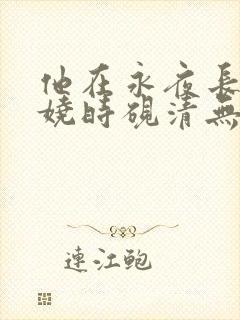 他在永夜長
嬈時硯清無
連江鮑